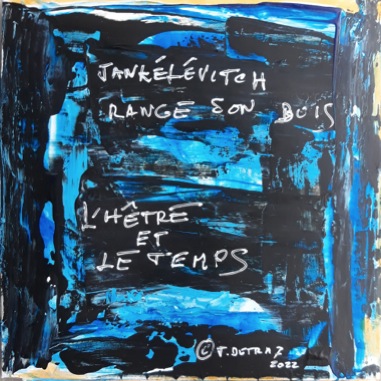 JANKÉLÉVITCH
RANGE SON BOIS
L'HÊTRE
ET
LE TEMPS
© T. DETRAZ
2022